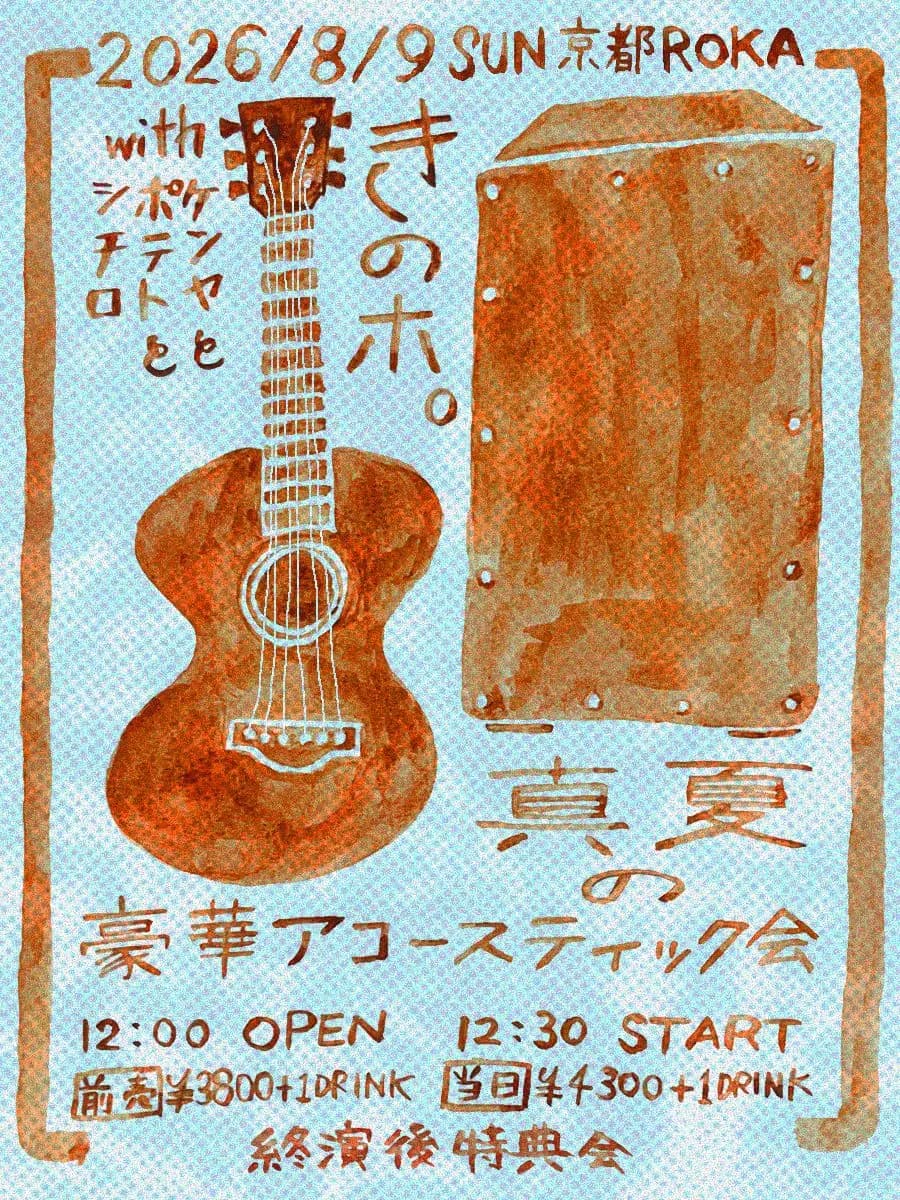 2026/8/9 SUN 京都 ROKA
きのホ。
with
ケンヤと
ポテトと
シチロ
真夏
の
豪華アコースティック会
12:00 OPEN 12:30 START
前売 ¥3800+1DRINK 当日 ¥4300+1DRINK
終演後特典会